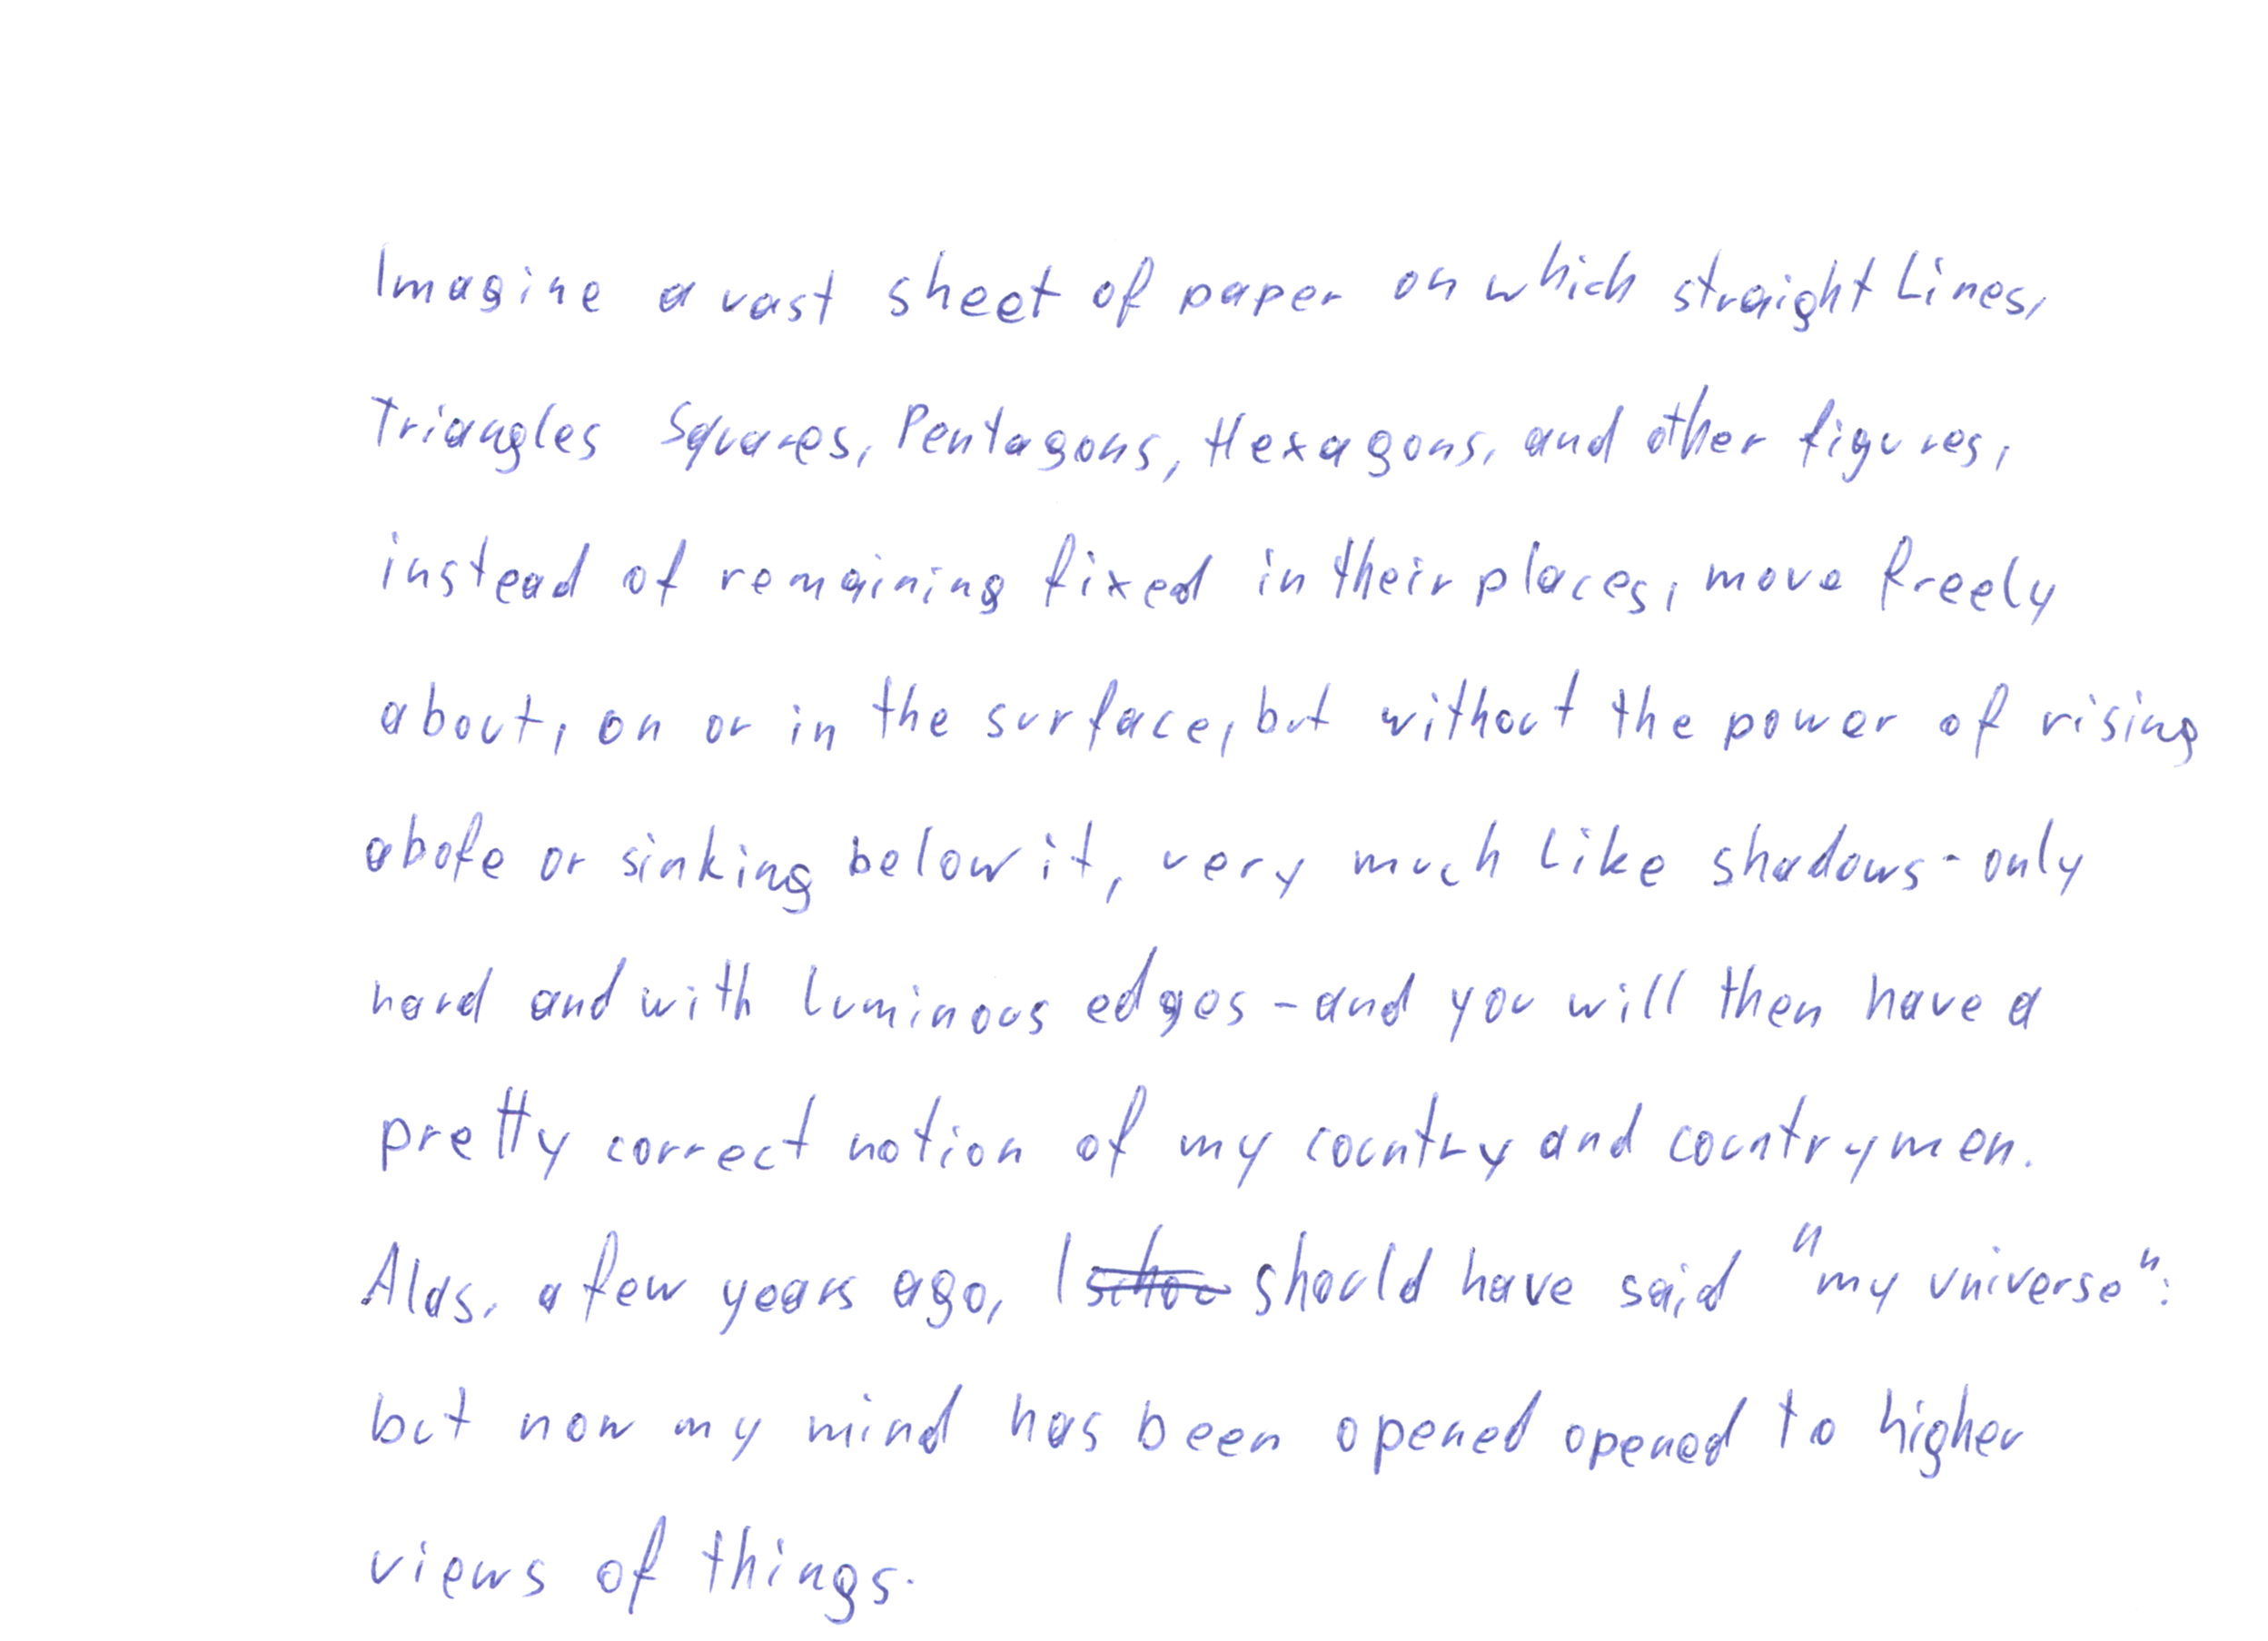 Imagine a vast sheet of paper on which straight Lines,
Triangles Squares, Pentagons, Hexagons, and other figures,
instead of remaining fixed in their places, move freely
about, on or in the surface, but without the power of rising
abofe or sinking below it, very much like shadows - only
hard and with luminous edges - and you will then have a
pretty correct notion of my country and countrymen.
Alas, a few years ago, I should have said "my universe":
but now my mind has been opened opened to higher
views of things.